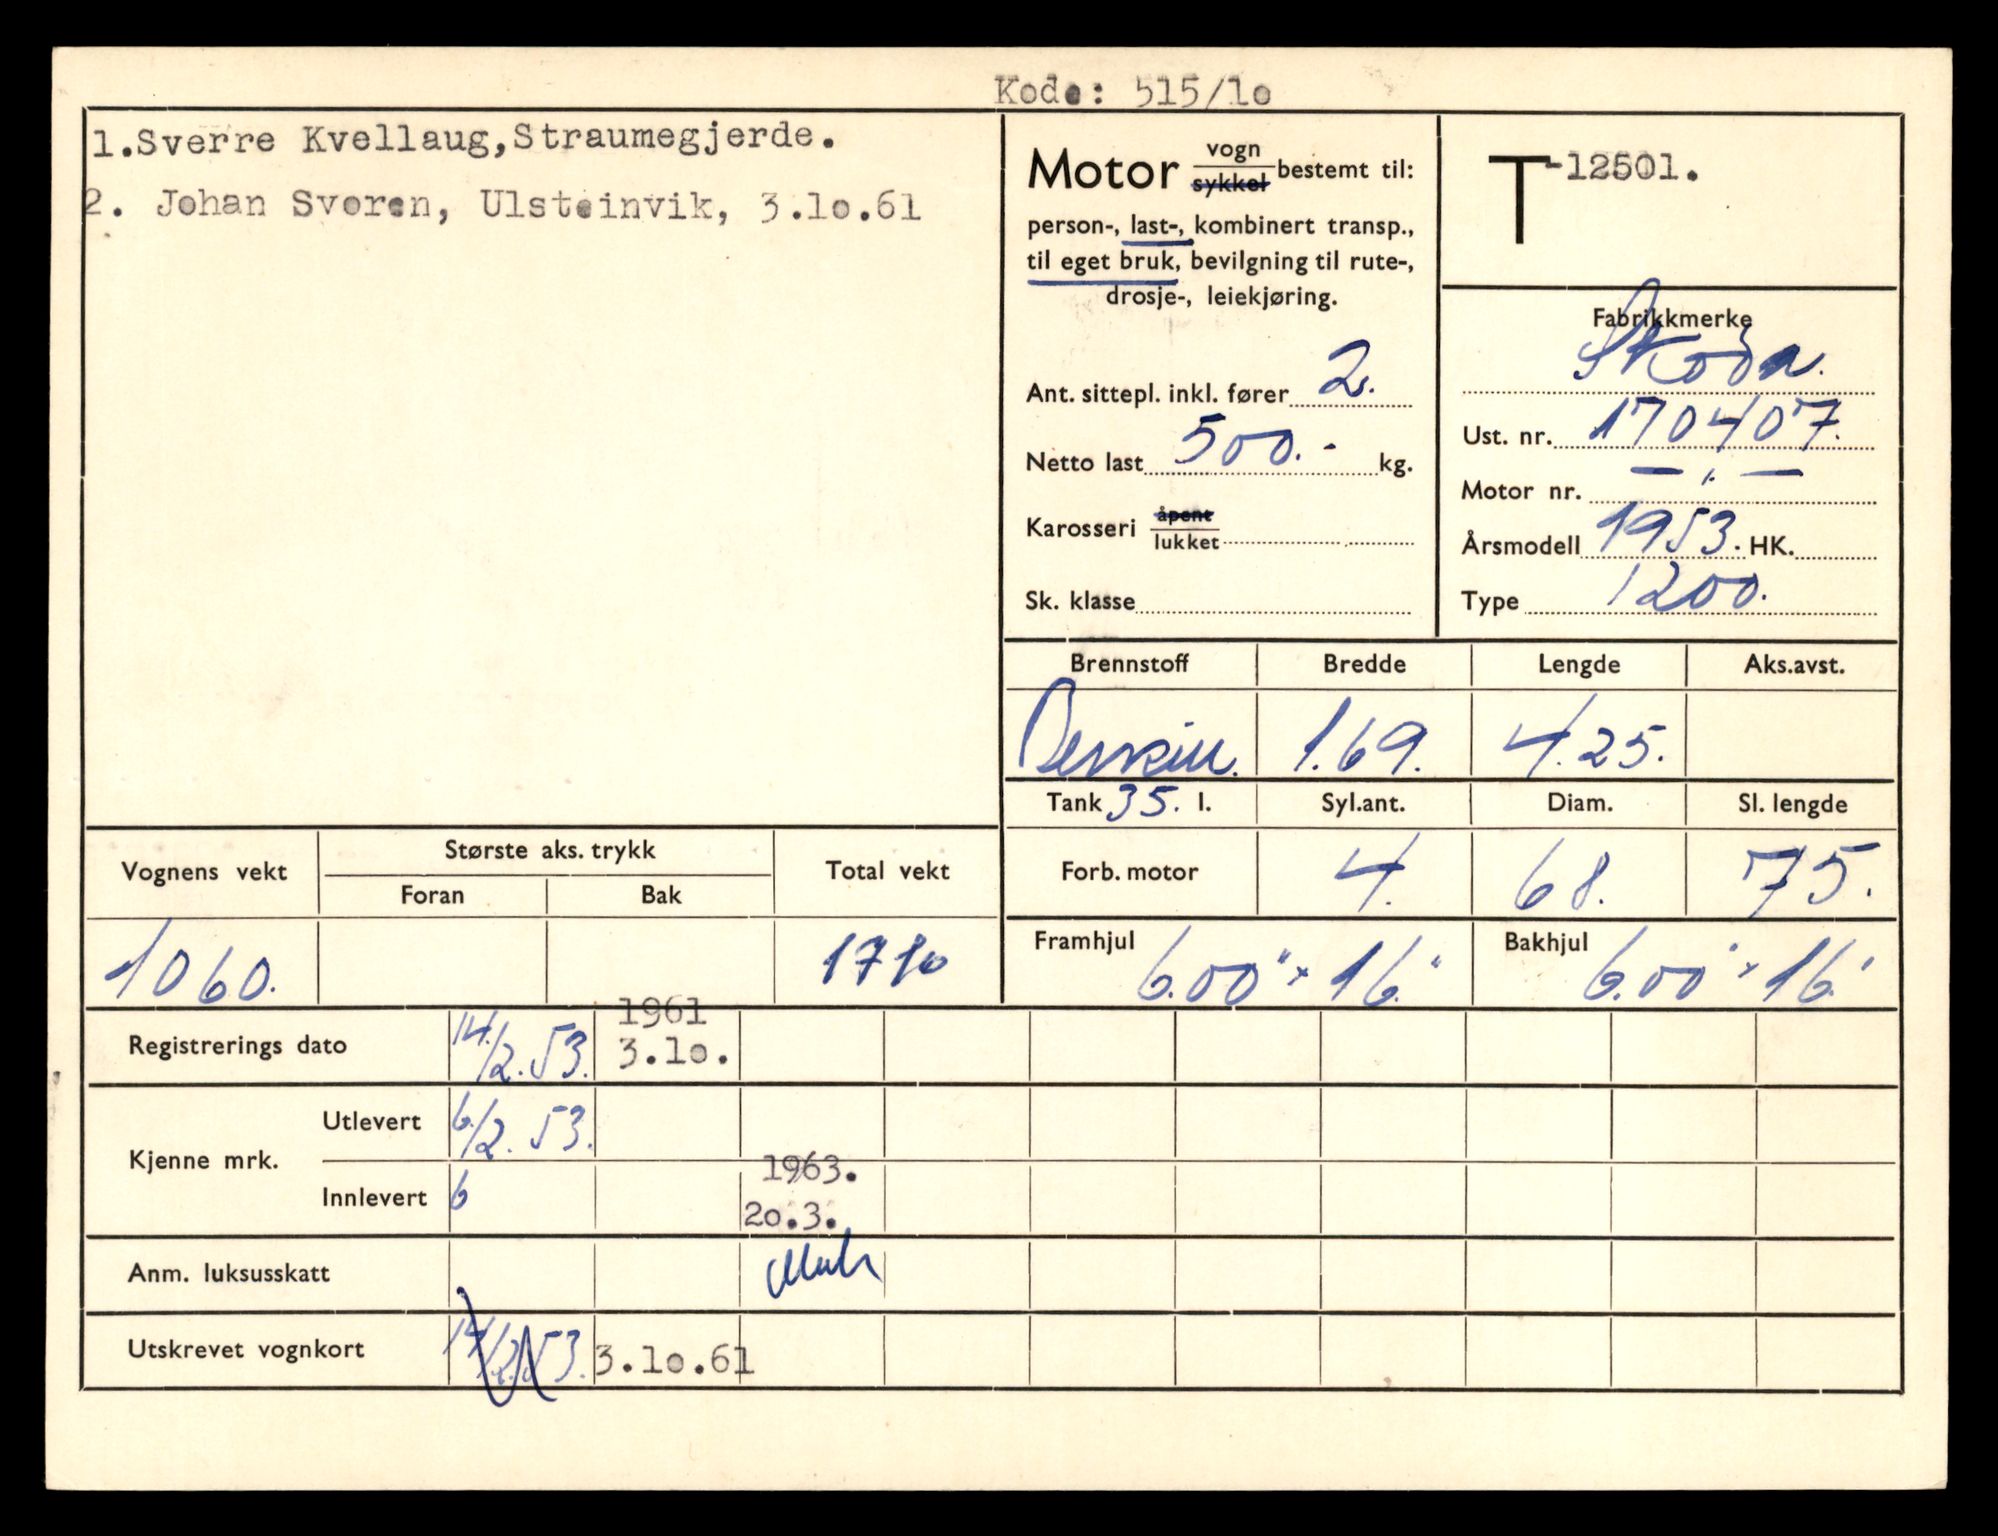 Kode: 515/1o
1.Sverre Kvellaug,Straumegjerde.
2. Johan Svoren, Ulsteinvik, 3.1o.61
Motor vogn sykkel bestemt til:
person-, last-, kombinert transp.,
til eget bruk, bevilgning til rute-,
drosje-, leiekjøring.
Ant. sittepl. inkl. fører 2.
Netto last 500.- kg.
Karosseri åpent lukket
Sk. klasse
T-12501.
Fabrikkmerke
Skoda.
Ust. nr. 170407.
Motor nr. — " —
Årsmodell 1953. HK.
Type 1200.
Brennstoff Bredde Lengde Aks.avst.
Bensin. 1.69. 4.25.
Tank 35. l. Syl.ant. Diam. Sl. lengde
Forb. motor 4. 68. 75.
Framhjul 6.00" x 16" Bakhjul 6.00" x 16"
Vognens vekt Største aks. trykk Total vekt
Foran Bak
1060. 1710
Registrerings dato 14/2.53. 1961 3.1o.
Kjenne mrk.
Utlevert 6/2.53.
Innlevert 6 1963. 2o.3.
Anm. luksusskatt
Utskrevet vognkort 14/2.53. 3.1o.61